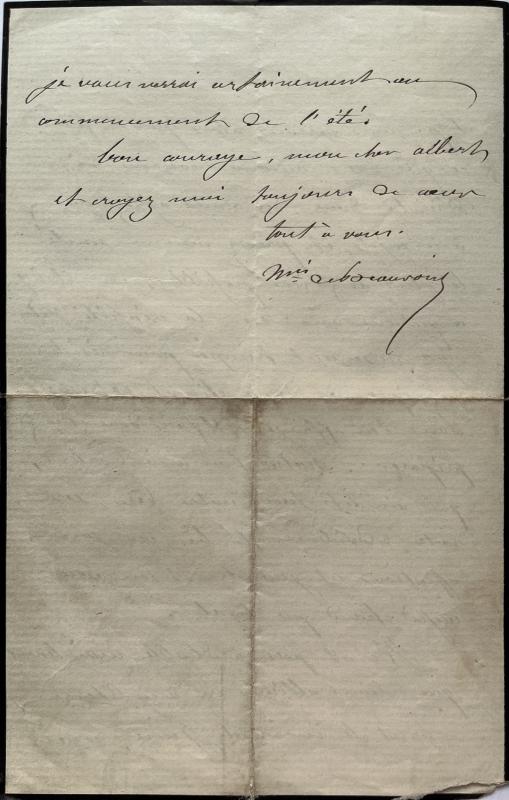 je vous verrai certainement au
commencement de l'été.
bon courage, mon cher albert
et croyez moi toujours de cœur
tout à vous.
Mis de Beauvoir